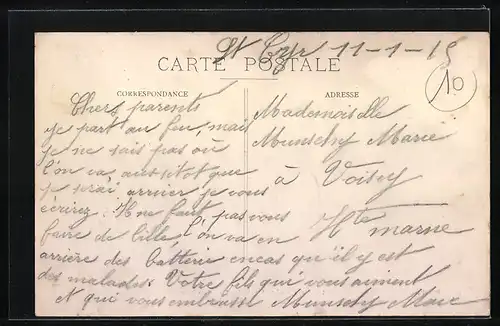 St Cyr 11-1-15
CARTE POSTALE
10
CORRESPONDANCE
Chers parents
je part au feu, mai
je ne sais pas où
l'on va, aussitot que
je serai arriver je vous
écrirez. Il ne faut pas vous
faire de bille, l'on va en
arrière des batterie encas qu'il y est
des malades. Votre fils qui vous aiment
et qui vous embrasse Munschy
ADRESSE
Mademoiselle
Munschy Marie
à Voisey
Hte marne